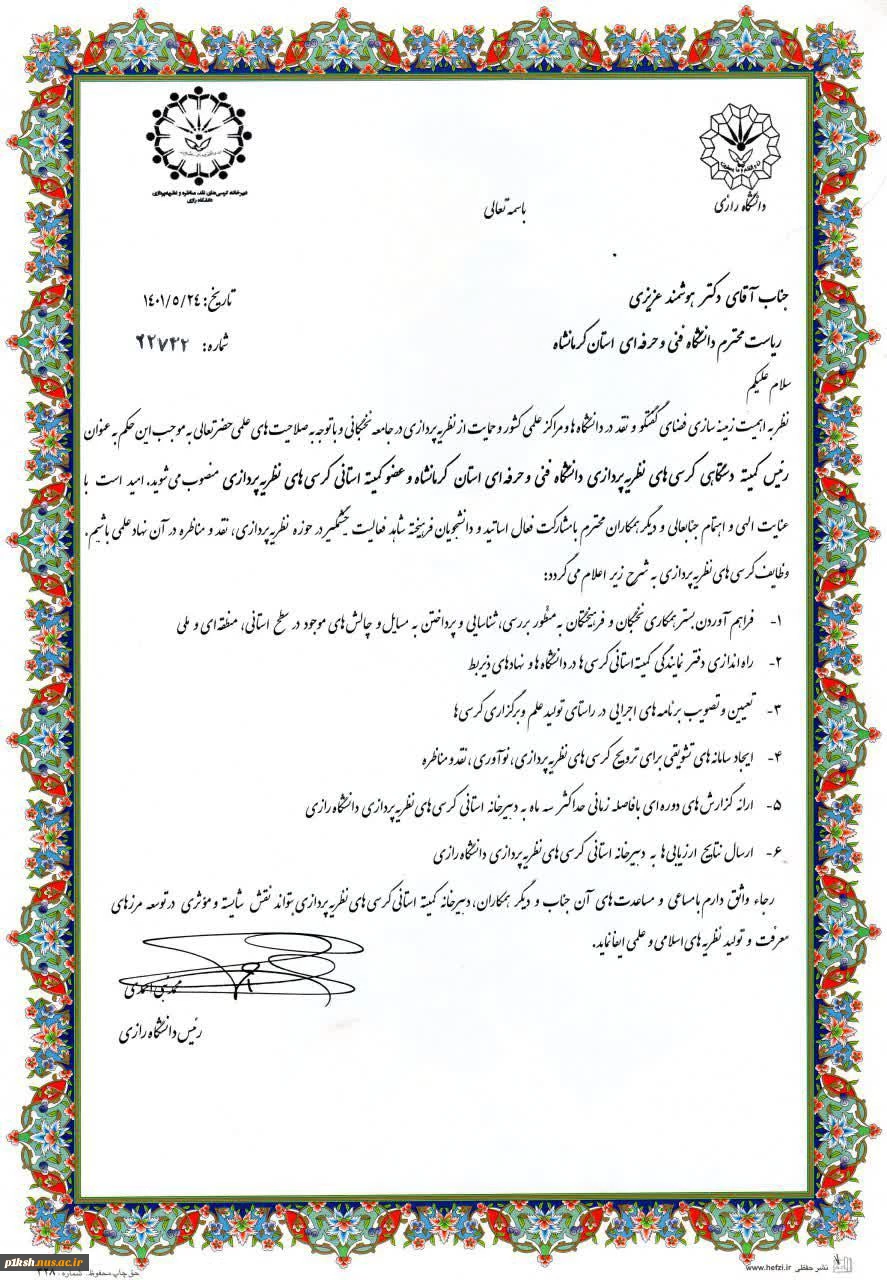 دبیرخانه کرسی‌های نقد، مناظره و نظریه‌پردازی
دانشگاه رازی
دانشگاه رازی
باسمه تعالی
تاریخ: ۱۴۰۱/۵/۲۴
شماره: ۲۲۷۴۲
جناب آقای دکتر هوشمند عزیزی
ریاست محترم دانشگاه فنی و حرفه ای استان کرمانشاه
سلام علیکم
نظر به اهمیت زمینه سازی فضای گفتگو و نقد در دانشگاه ها و مراکز علمی کشور و حمایت از نظریه پردازی در جامعه نخبگانی و با توجه به صلاحیت های علمی حضرتعالی به موجب این حکم به عنوان
رئیس کمیته دستگاهی کرسی های نظریه پردازی دانشگاه فنی و حرفه ای استان کرمانشاه و عضو کمیته استانی کرسی های نظریه پردازی منصوب می شوید. امید است با
عنایت الهی و اهتمام جنابعالی و دیگر همکاران محترم با مشارکت فعال اساتید و دانشجویان فرهیخته شاهد فعالیت چشمگیر در حوزه نظریه پردازی، نقد و مناظره در آن نهاد علمی باشیم.
وظایف کرسی های نظریه پردازی به شرح زیر اعلام می گردد:
۱- فراهم آوردن بستر همکاری نخبگان و فرهیختگان به منظور بررسی، شناسایی و پرداختن به مسایل و چالش های موجود در سطح استانی، منطقه ای و ملی
۲- راه اندازی دفتر نمایندگی کمیته استانی کرسی ها در دانشگاه ها و نهادهای ذیربط
۳- تعیین و تصویب برنامه های اجرایی در راستای تولید علم و برگزاری کرسی ها
۴- ایجاد سامانه های تشویقی برای ترویج کرسی های نظریه پردازی، نوآوری، نقد و مناظره
۵- ارائه گزارش های دوره ای با فاصله زمانی حداکثر سه ماه به دبیرخانه استانی کرسی های نظریه پردازی دانشگاه رازی
۶- ارسال نتایج ارزیابی ها به دبیرخانه استانی کرسی های نظریه پردازی دانشگاه رازی
رجاء واثق دارم با مساعی و مساعدت های آن جناب و دیگر همکاران، دبیرخانه کمیته استانی کرسی های نظریه پردازی بتواند نقش شایسته و مؤثری در توسعه مرزهای
معرفت و تولید نظریه های اسلامی و علمی ایفا نماید.
محمدنبی احمدی
رئیس دانشگاه رازی
نشر حفظی www.hefzi.ir
حق چاپ محفوظ. شماره:
p1ksh.nus.ac.ir